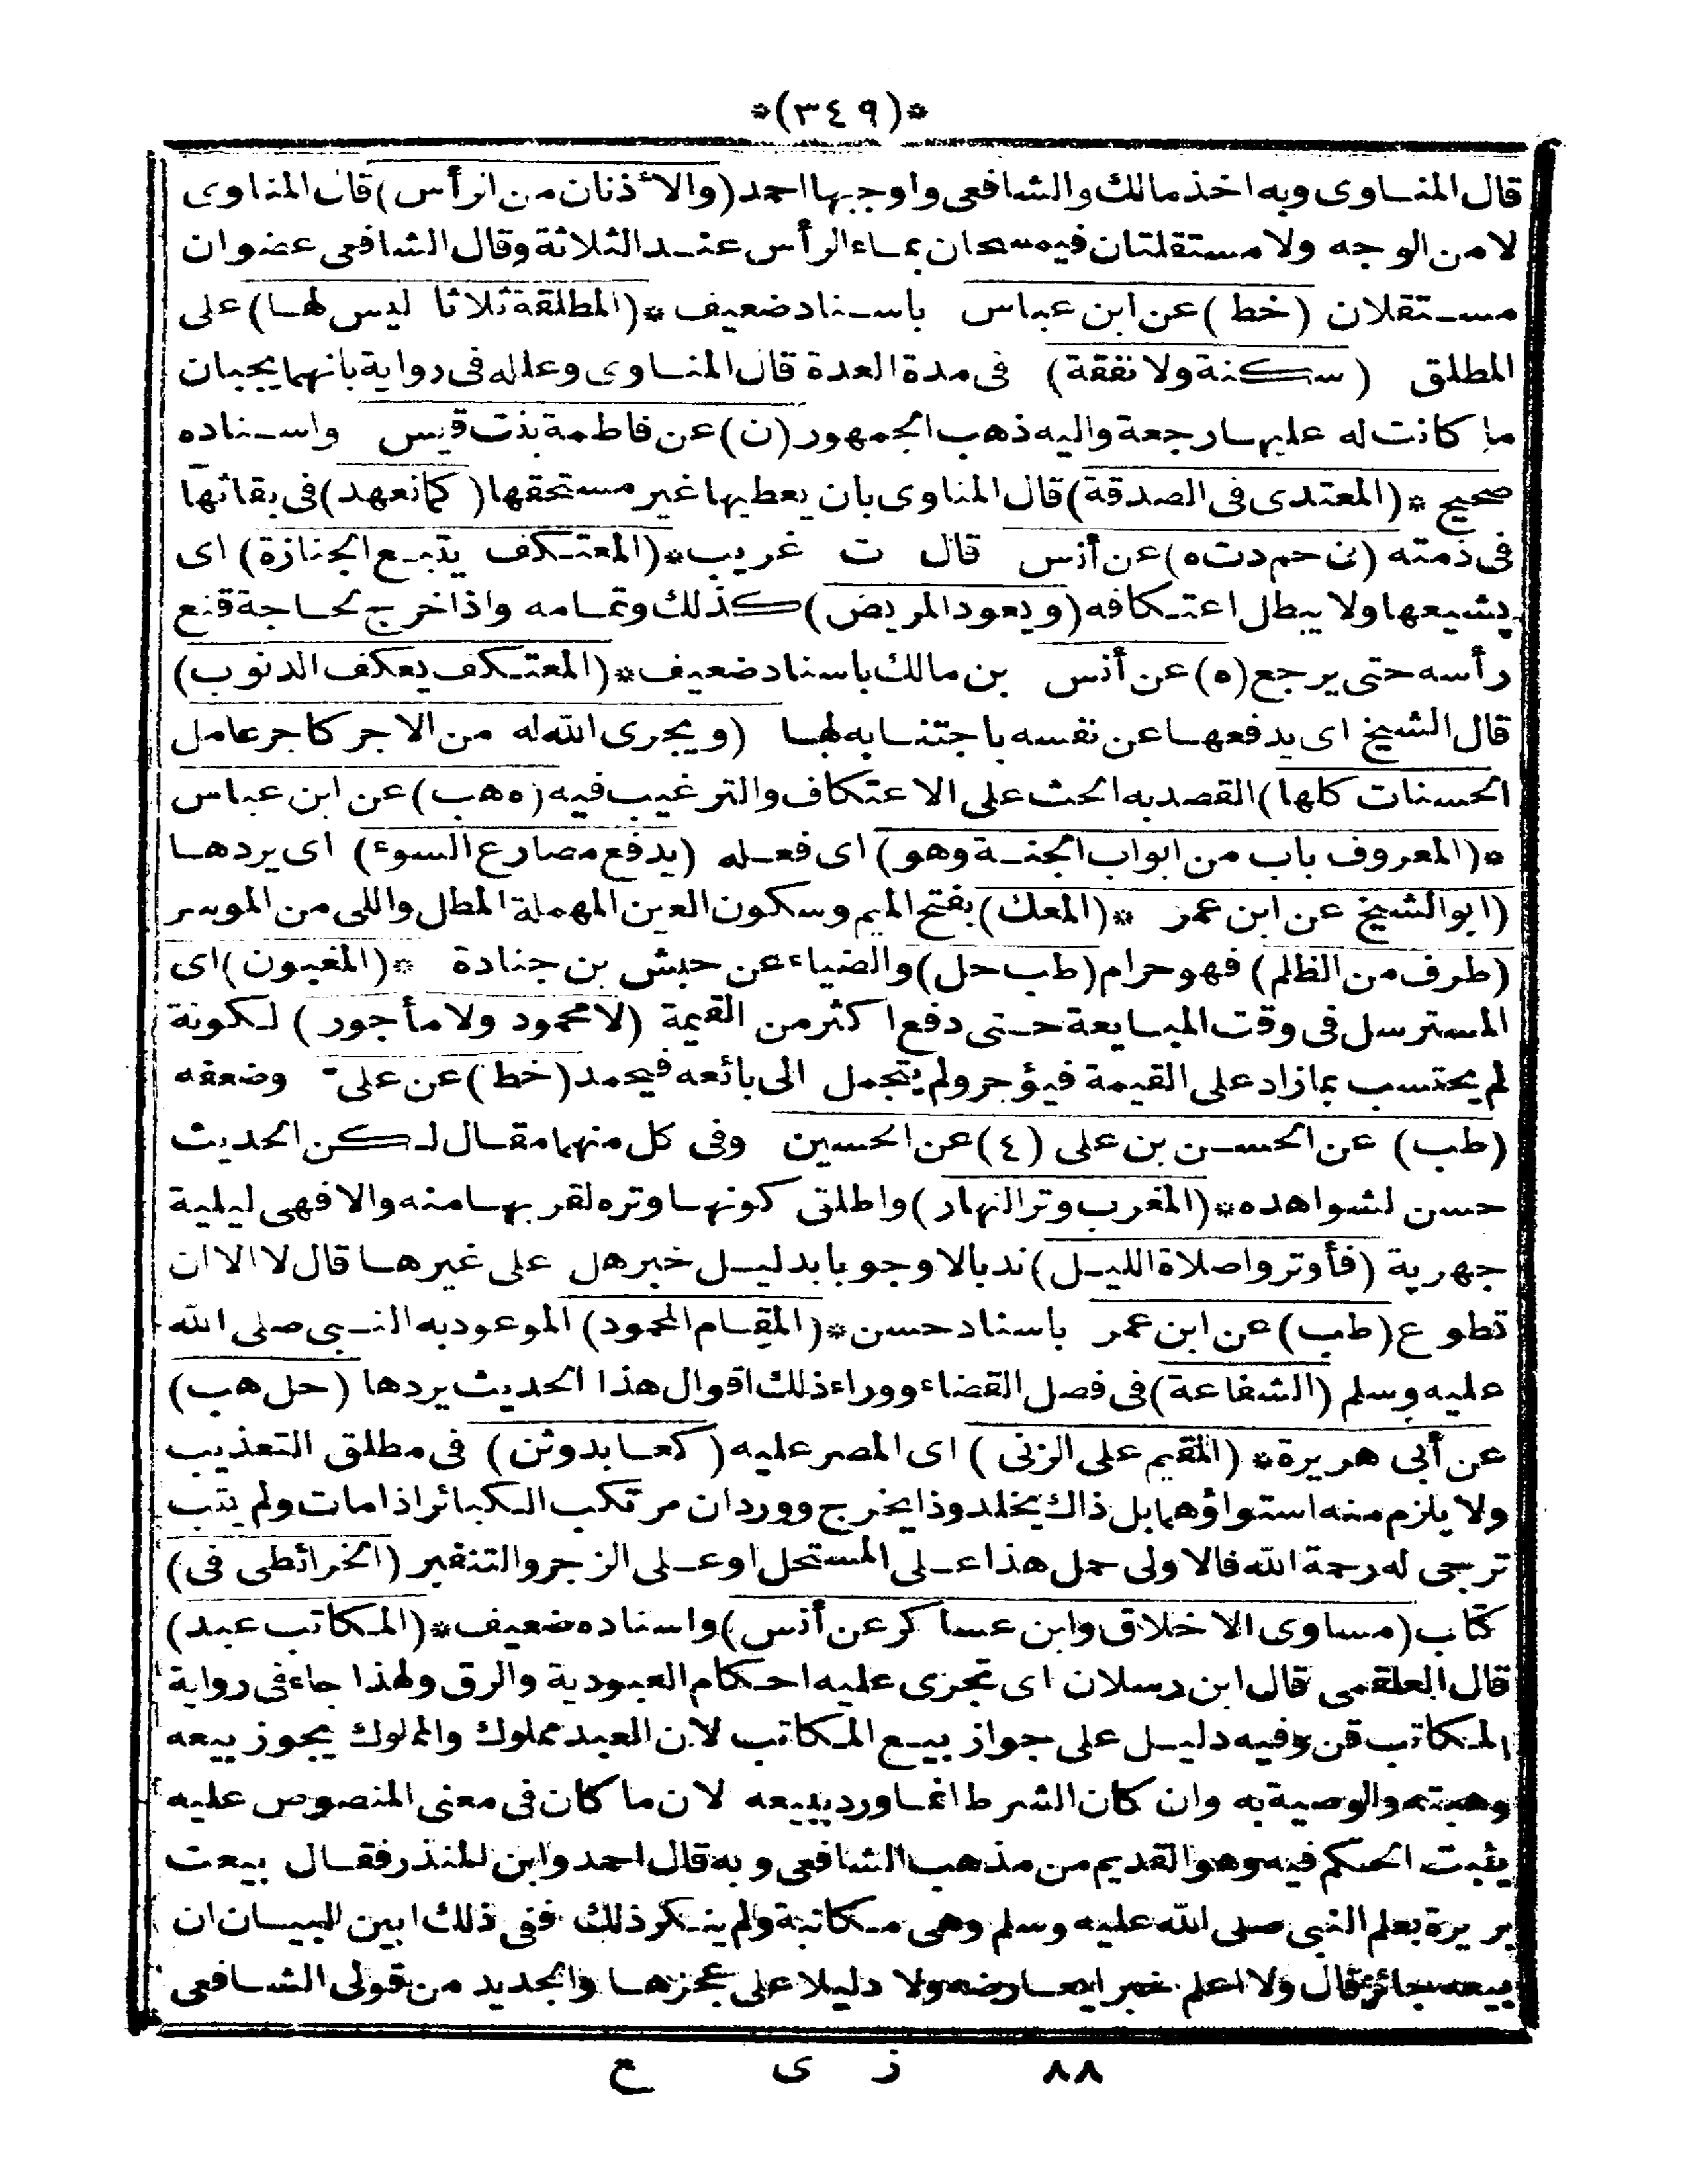 *(٣٤٩)*
قال المناوى وبه اخذ مالك والشافعى واوجبها احمد (والاذنان من الرأس) قال المناوى
لا من الوجه ولا مستقلتان فيمسحان بماء الرأس عند الثلاثة وقال الشافعى عضوان
مستقلان (خط) عن ابن عباس باسناد ضعيف *(المطلقة ثلاثا ليس لها) على
المطلق (سكنة ولا نفقة) فى مدة العدة قال المناوى وعلله فى رواية بانهما يجبان
ما كانت له عليها رجعة واليه ذهب الجمهور (ن) عن فاطمة بنت قيس واسناده
صحيح *(المعتدى فى الصدقة) قال المناوى بان يعطيها غير مستحقها (كمانعهد) فى بقائها
فى ذمته (حم د ت ه) عن أنس قال ت غريب *(المعتكف يتبع الجنازة) اى
يشيعها ولا يبطل اعتكافه (ويعود المريض) كذلك وتمامه واذا خرج لحاجة قنع
رأسه حتى يرجع (ه) عن أنس بن مالك باسناد ضعيف *(المعتكف يعكف الذنوب)
قال الشيخ اى يدفعها عن نفسه باجتنابه لها (ويجرى الله له من الاجر كاجر عامل
الحسنات كلها) القصد به الحث على الاعتكاف والترغيب فيه (ه هب) عن ابن عباس
*(المعروف باب من ابواب الجنة وهو) اى فعله (يدفع مصارع السوء) اى يردها
(ابو الشيخ عن ابن عمر *(المعك) بفتح الميم وسكون العين المهملة المطل واللى من الموسر
(طرف من الظلم) فهو حرام (طب حل) والضياء عن حبش بن جنادة *(المغبون) اى
المسترسل فى وقت المبايعة حتى دفع اكثر من القيمة (لا محمود ولا مأجور) لكونة
لم يحتسب بما زاد على القيمة فيؤجر ولم يتجمل الى بائعه فيحمد (خط) عن على وضعفه
(طب) عن الحسن بن على (٤) عن الحسين وفى كل منهما مقال لكن الحديث
حسن لشواهده *(المغرب وتر النهار) واطلق كونها وتره لقربها منه والا فهى ليلية
جهرية (فأوتروا صلاة الليل) ندبا لا وجوبا بدليل خبر هل على غيرها قال لا الا ان
تطوع (طب) عن ابن عمر باسناد حسن *(المقام المحمود) الموعود به النبى صلى الله
عليه وسلم (الشفاعة) فى فصل القضاء ووراء ذلك اقوال هذا الحديث يردها (حل هب)
عن أبى هريرة *(المقيم على الزنى) اى المصر عليه (كعابد وثن) فى مطلق التعذيب
ولا يلزم منه استواؤهما بل ذاك يخلد وذا يخرج وورد ان مرتكب الكبائر اذا مات ولم يتب
ترجى له رحمة الله فالاولى حمل هذا على المستحل او على الزجر والتنفير (الخرائطى فى)
كتاب (مساوى الاخلاق وابن عساكر عن أنس) واسناده ضعيف *(المكاتب عبد)
قال العلقمى قال ابن رسلان اى تجرى عليه احكام العبودية والرق ولهذا جاء فى رواية
المكاتب قن وفيه دليل على جواز بيع المكاتب لان العبد مملوك والمملوك يجوز بيعه
وهبته والوصية به وان كان الشرط انما ورد ببيعه لان ما كان فى معنى المنصوص عليه
يثبت الحكم فيه وهو القديم من مذهب الشافعى وبه قال احمد وابن المنذر فقال بيعت
بريرة بعلم النبى صلى الله عليه وسلم وهى مكاتبة ولم ينكر ذلك ففى ذلك ابين البيان ان
بيعه جائز قال ولا اعلم خبرا يعارضه ولا دليلا على عجزها والجديد من قولى الشافعى
٨٨ ز ى ع